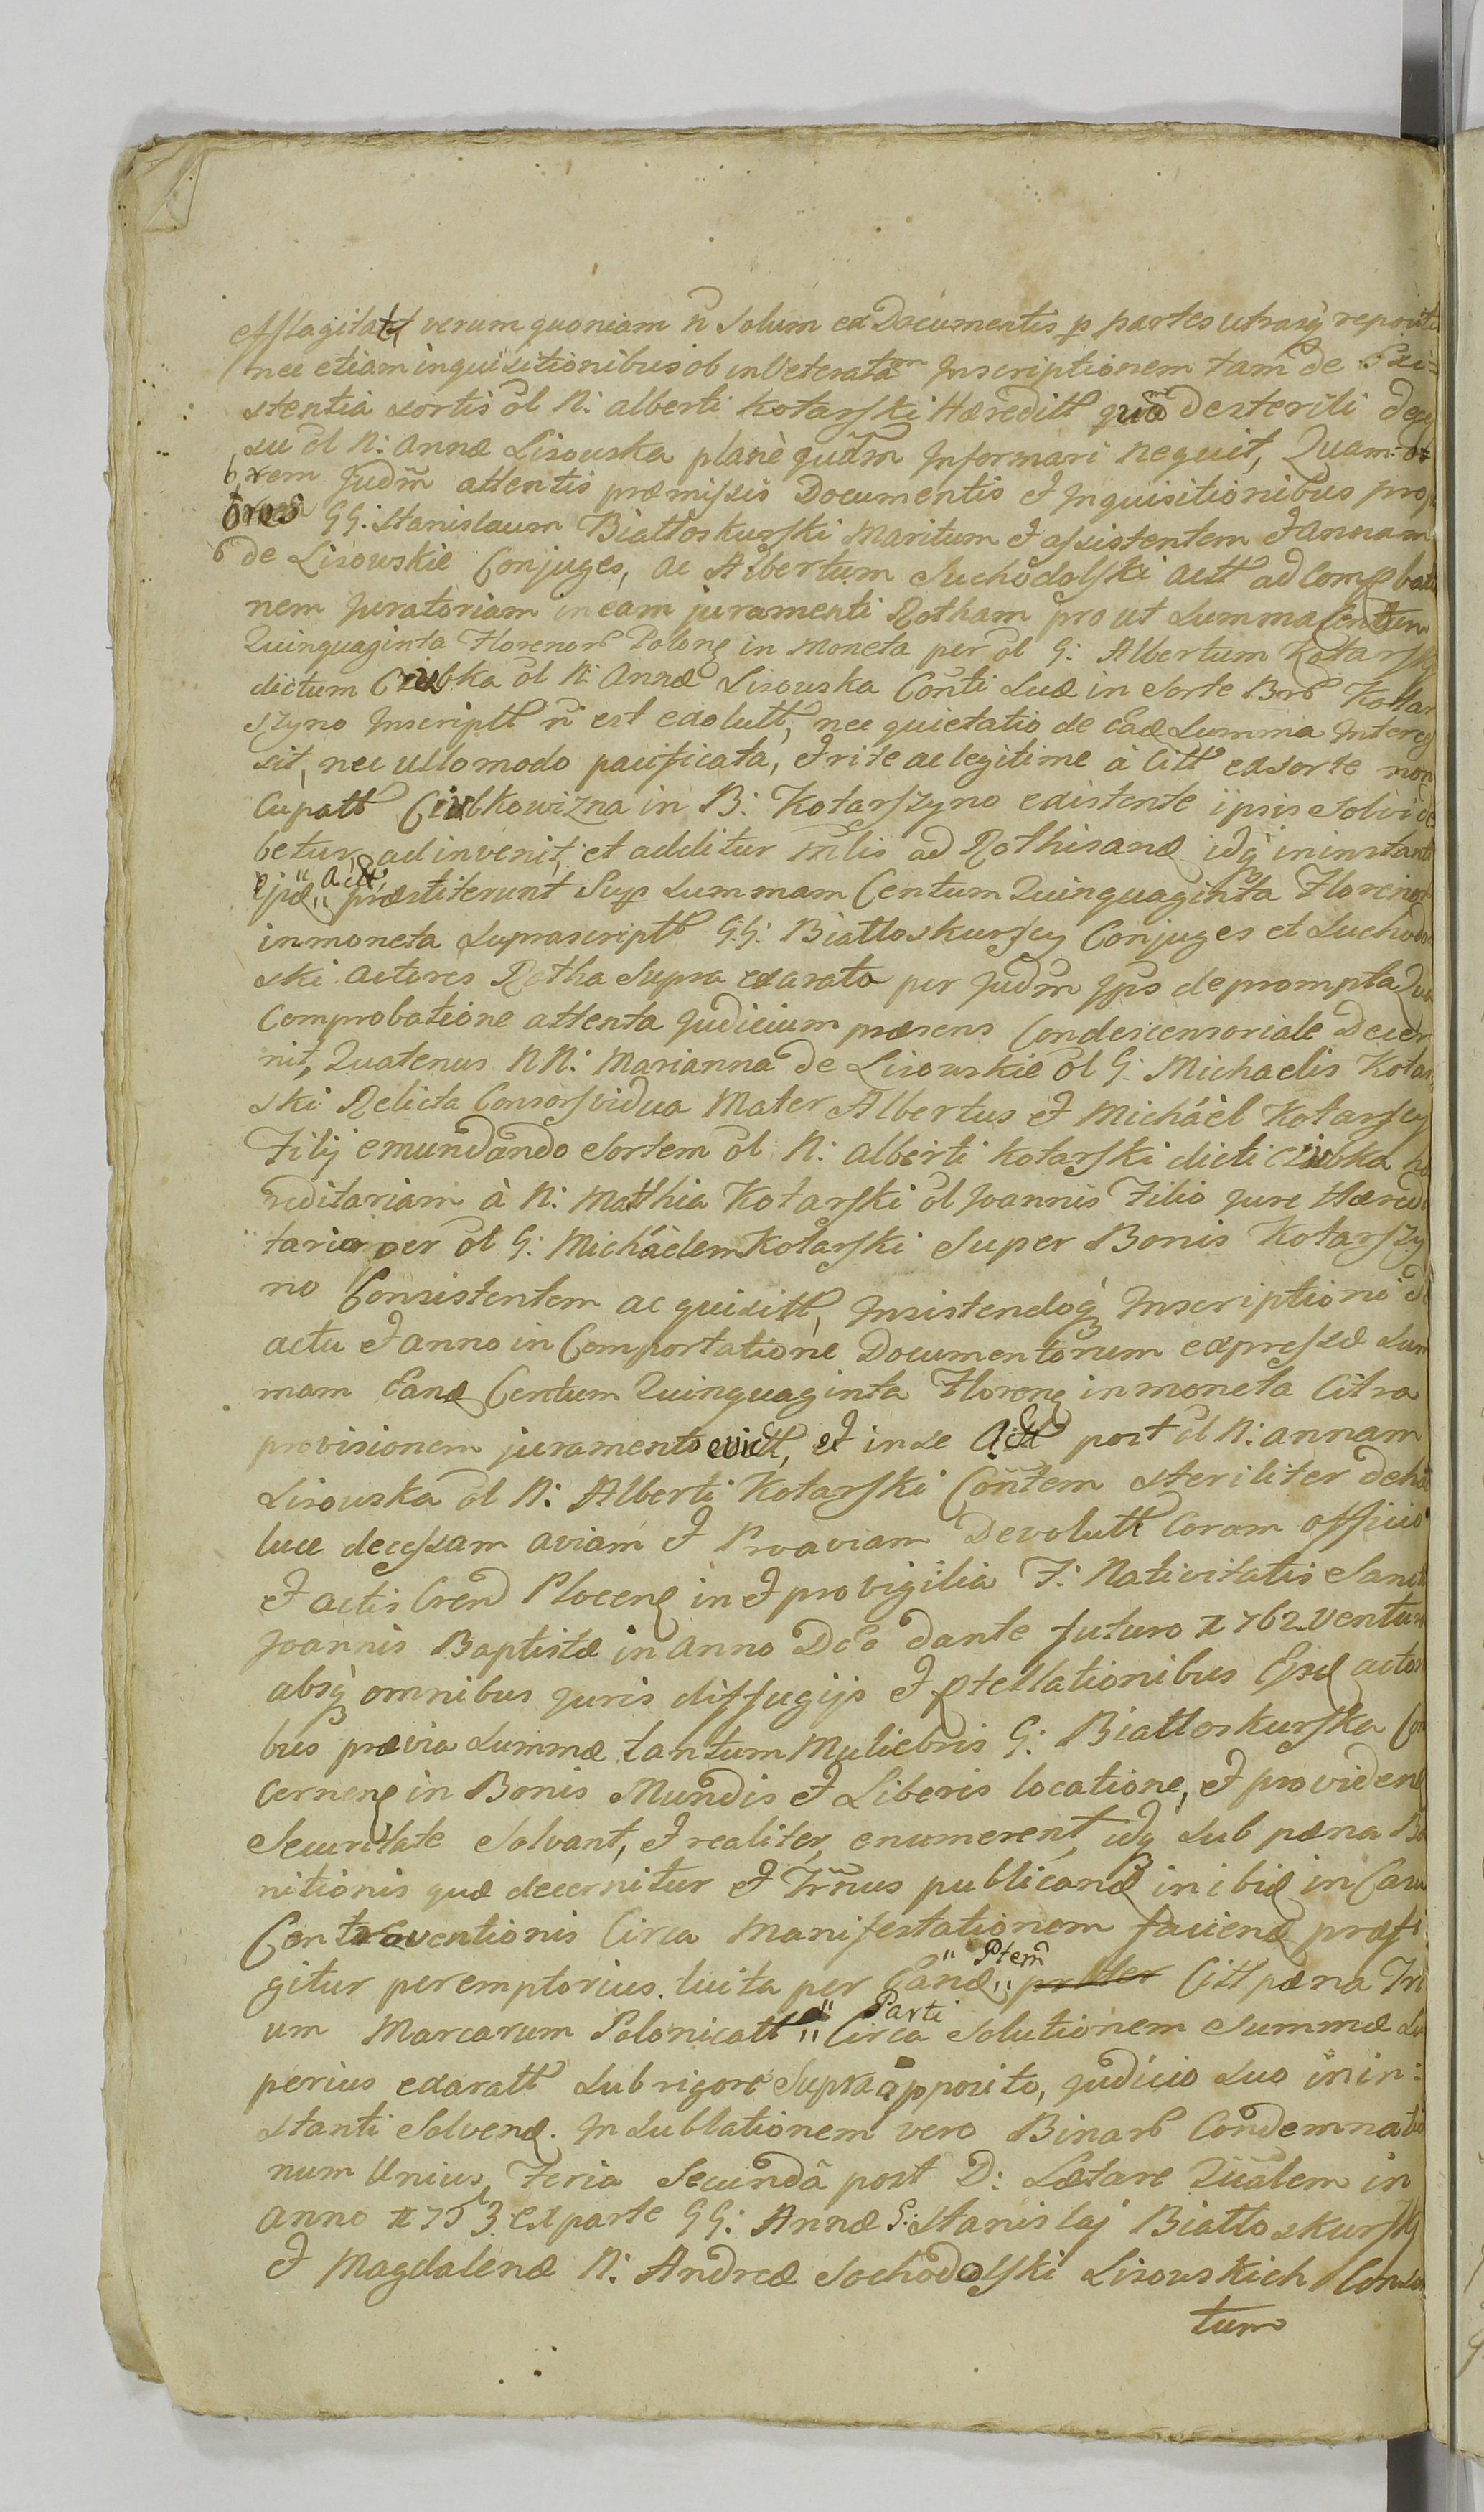 efflagitatt verum quoniam ñ solum ex Documentis p partes utrasq reposit
nec etiam inquisitionibus ob inveteratam Inscriptionem tam de Exi-
stentia sortis ol N: Alberti Kotarski Hæreditt quā de sterili dece
su ol N: Annæ Lisowska planè quidm Informari nequit, Quam ob
rem Judm̃ attentis præmissis Documentis et Inquisitionibus prop
GG: Stanislaum Białłoskurski Maritum et assistentem et Annam
de Lisowskie Conjuges, ac Albertum Suchodolski actt ad comprobati
nem Juratoriam in eam juramenti Rotham pro ut summa Centum
Quinquaginta Florenor Polon in moneta per ol G: Albertum Kotarski
dictum Ciubka ol N: Annæ Lisowska Cońti suæ in sorte Bor Kottar
szyno Inscriptt ñ est exolutt, nec quietatio de eadē summa Interces
sit, nec ullo modo pacificata, et rite ac legitime à Citt ex sorte nun
cupatt Ciubkowizna in B: Kotarszyno existente ipsis solvi de
betur, adinvenit, et additur Mlis ad Rothisand idq in instanti
" Act,
Ipsæ " præstiterunt Sup summam Centum Quinquaginta Florenor
in moneta suprascriptt G.G: Białłoskurscy Conjuges et Suchodol
ski actores Rotha supra exarata per Judm Ips deprompta Qua
Comprobatione attenta Judicium præsens Condescensoriale Decer
nit, Quatenus NN: Marianna de Lisowskie ol G: Michaelis Kotar
ski Relicta Consors vidua Mater Albertus et Michäèl Kotarscy
Filij emundando sortem ol N: Alberti Kotarski dicti Ciubka hæ
reditariam à N: Matthia Kotarski ol Joannis Filio Jure Hæredi
tario per ol G: Michäèlem Kotarski Super Bonis Kotarszy
no Consistentem acquisitt, Insistendoq Inscriptioni de
actu et anno in Comportatione Documentorum expressæ sum
mam Eand Centum Quinquaginta Floren in moneta citra
provisionem juramento evictt, et in se Actt post ol N: Annam
Lisowska ol N: Alberti Kotarski Cońtem steriliter de hac
luce decessam aviam et Proaviam Devolutt Coram officio
et actis Cren Plocen in et pro vigilia F: Nativitatis Sancti
Joannis Baptistæ in Anno Dēo dante futuro 1762 ventur
absq omnibus Juris diffugijs et ptellationibus Ijsd acto
bus prævia summæ tantum Muliebris G: Białłoskurska Con
cernen in Bonis Mundis et Liberis locatione, et providen
Securitate solvant, et realiter, enumerent, idq sub pæna Ba
nitionis quæ decernitur et Trńnus publicand in ibid in Casu
Contraventionis Circa Manifestationem faciend præfi
" Ptem̃
gitur peremptorius. luita per Eand " Citt pæna Tri
" Parti
um Marcarum Polonicatt " Circa Solutionem Summæ su
perius exaratt sub rigore Supra apposito, Judicio suo in in-
stanti Solvend. In sublationem vero Binar Condemnatio
num Unius, Feria Secundā post D: Lætare Qūalem in
Anno 1753 ex parte GG: Annæ G: Stanislaj Białłoskurski
et Magdalenæ N: Andreæ Sochodolski Lisowskich Conso
tum